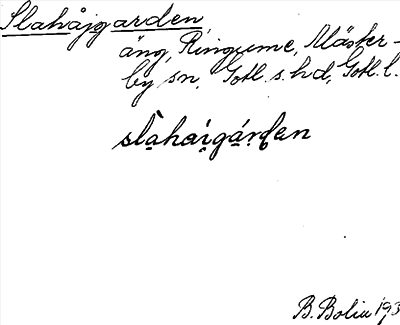 Slahåjgarden
äng, Ringume, Mäster-
by sn, Gotl. s. hd, Gotl. l.
slahaigárden
B. Bolin 193